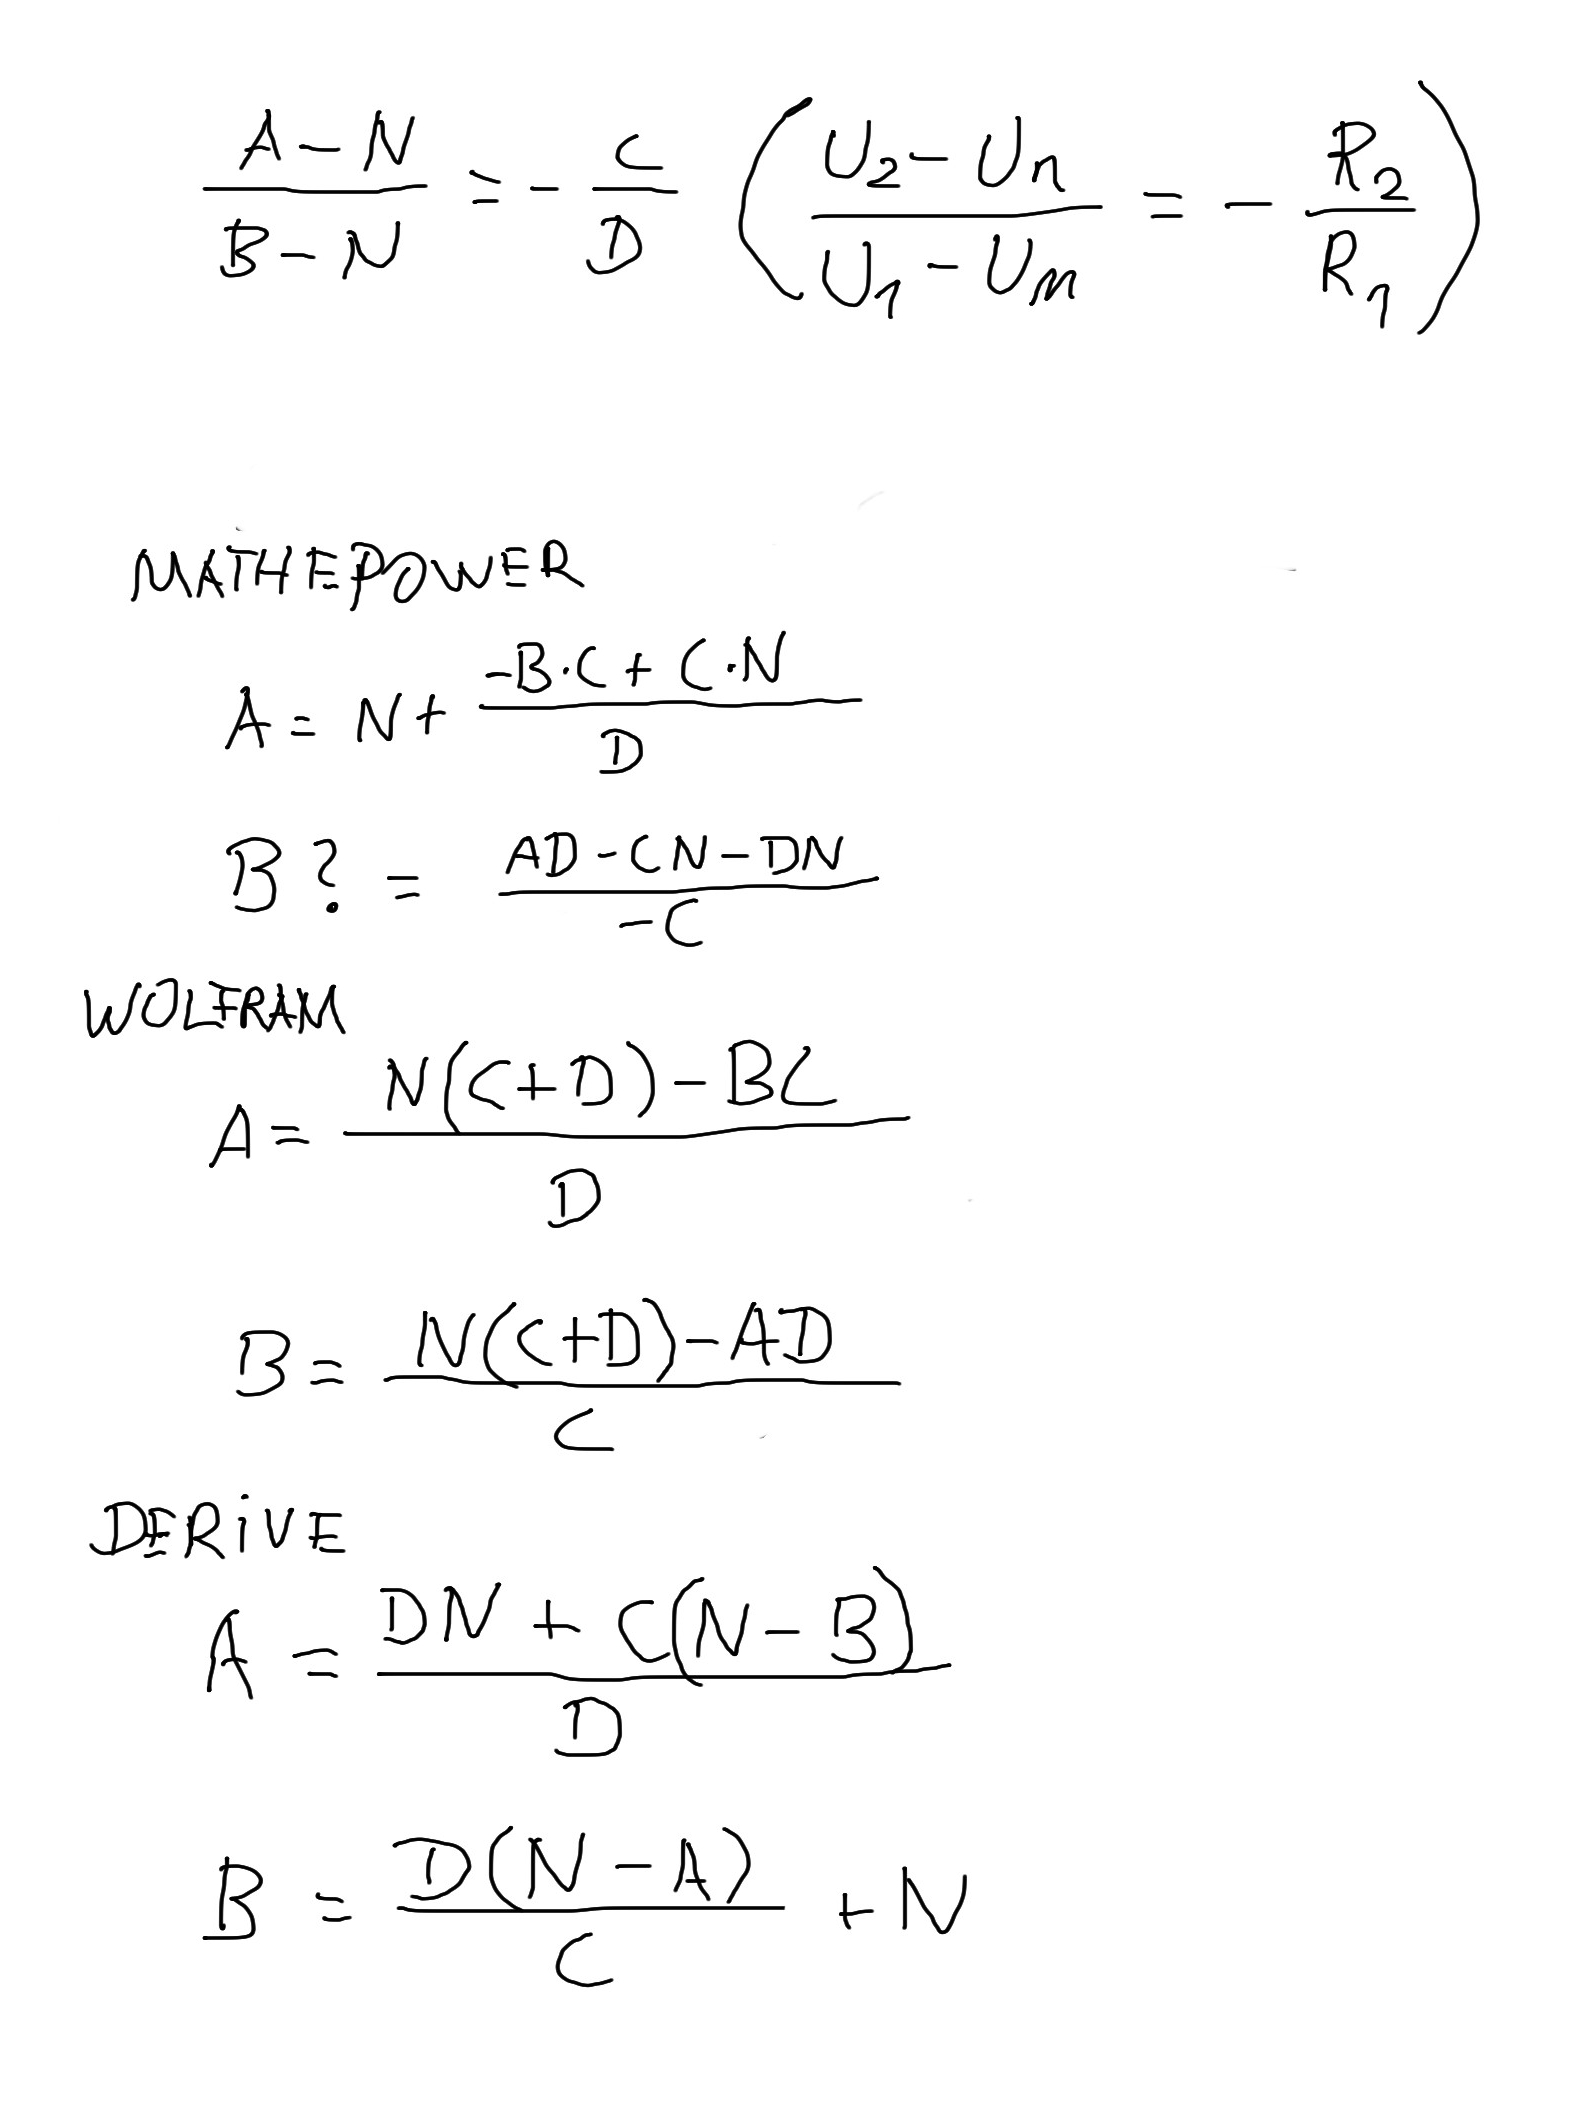 (A-N)/(B-N) = - C/D ( (U₂-Uₙ)/(U₁-Uₙ) = - R₂/R₁ )
MATHEPOWER
A = N + (-B·C + C·N)/D
B? = (AD-CN-DN)/(-C)
WOLFRAM
A = (N(C+D)-BC)/D
B = (N(C+D)-AD)/C
DERiVE
A = (DN + C(N-B))/D
B = (D(N-A))/C + N